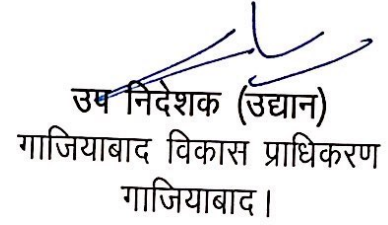 उप निदेशक (उद्यान)
गाजियाबाद विकास प्राधिकरण
गाजियाबाद।